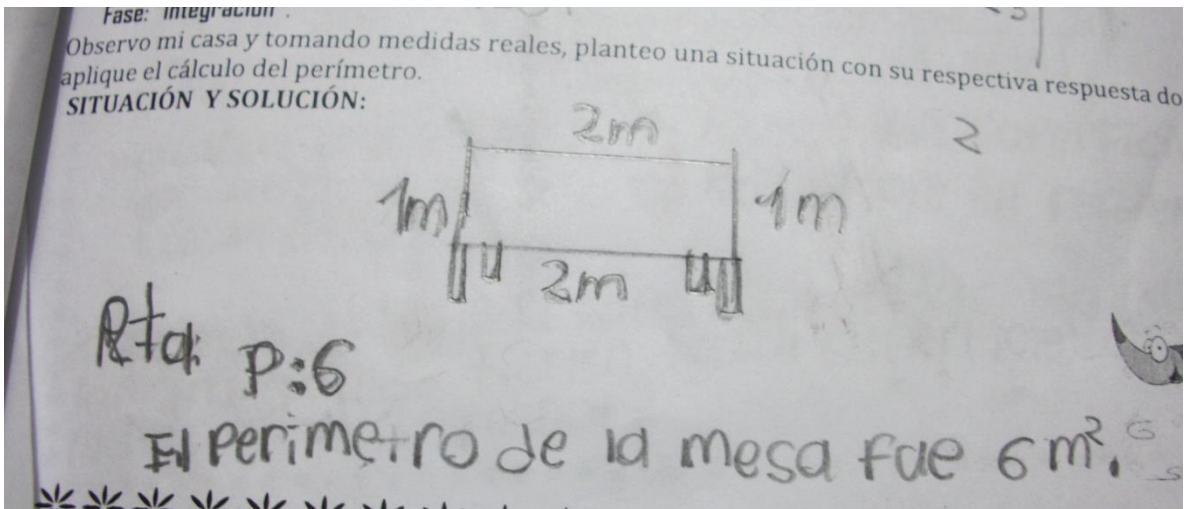 Fase: Integración .
Observo mi casa y tomando medidas reales, planteo una situación con su respectiva respuesta do
aplique el cálculo del perímetro.
SITUACIÓN Y SOLUCIÓN:
2m
2
1m
1m
2m
Rta:
P:6
El Perimetro de la mesa fue 6 m².